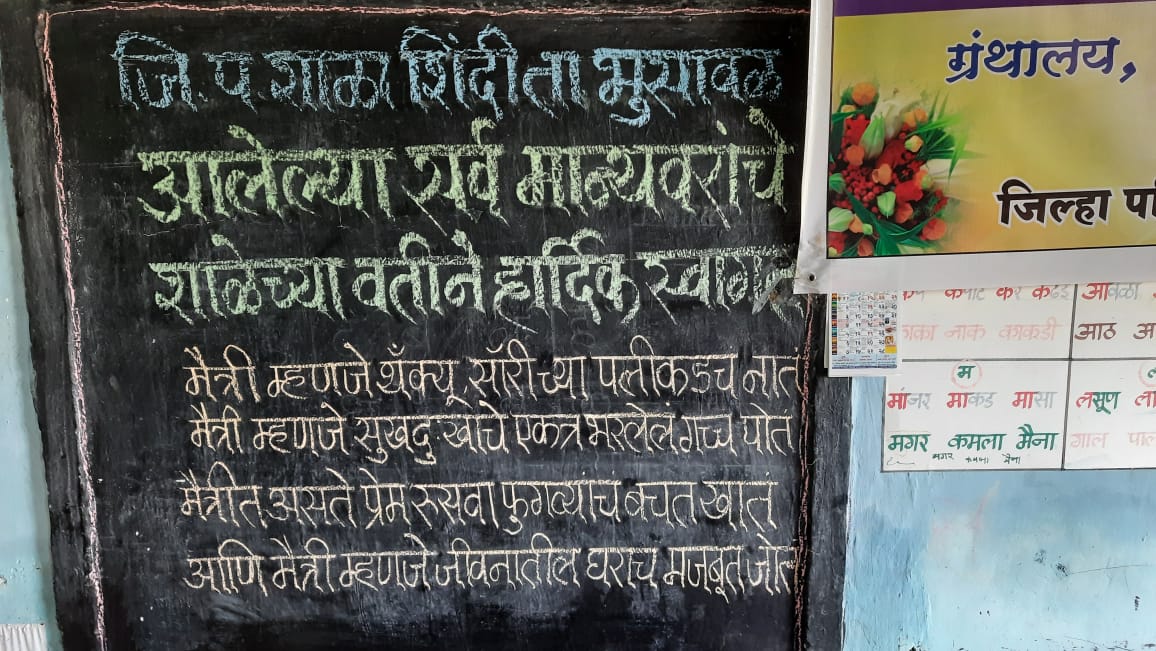 जि. प. शाळा शिंदी ता भुसावळ
आलेल्या सर्व मान्यवरांचे
शाळेच्या वतीने हार्दिक स्वागत
मैत्री म्हणजे थँक्यू, सॉरीच्या पलीकडच नातं
मैत्री म्हणजे सुखदुःखाचे एकत्र भरलेलं गच्च पोत
मैत्रीत असते प्रेम रुसवा फुगव्याचं बचत खातं
आणि मैत्री म्हणजे जीवनातील घराच मजबूत जोत
ग्रंथालय,
जिल्हा
कपाट कर कढई
काका नाक काकडी
आठ
म
मांजर माकड मासा
मगर कमला मैना
मगर कमला मैना
लसूण
गाल